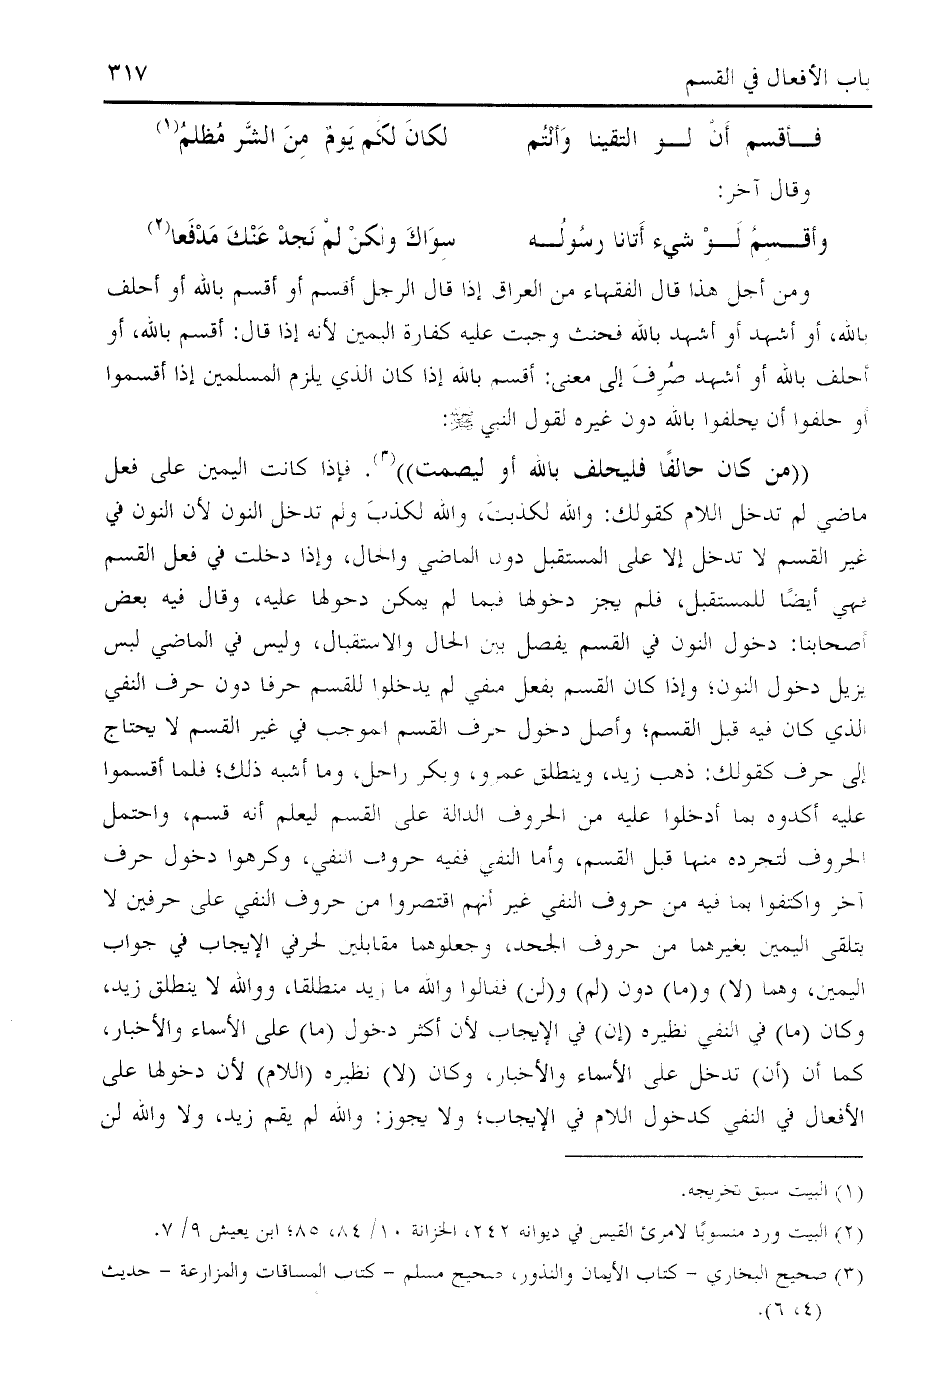 باب الأفعال في القسم ٣١٧
فـأقسم أَنْ لـو التقينا وَأَنْتُم لكانَ لكُم يَومٌ مِنَ الشَّر مُظلمُ(١)
وقال آخر:
وأقـسمُ لَـوْ شيء أَتانا رسُولُـه سِوَاكَ ولكنْ لمْ نَجدْ عَنْكَ مَدْفَعا(٢)
ومن أجل هذا قال الفقهاء من العراق إذا قال الرجل أقسم أو أقسم بالله أو أحلف
بالله، أو أشهد أو أشهد بالله فحنث وجبت عليه كفارة اليمين لأنه إذا قال: أقسم بالله، أو
أحلف بالله أو أشهد صُرِفَ إلى معنى: أقسم بالله إذا كان الذي يلزم المسلمين إذا أقسموا
أو حلفوا أن يحلفوا بالله دون غيره لقول النبي ﷺ:
((من كان حالفًا فليحلف بالله أو ليصمت))(٣). فإذا كانت اليمين على فعل
ماضي لم تدخل اللام كقولك: والله لكذبتَ، والله لكذبَ ولم تدخل النون لأن النون في
غير القسم لا تدخل إلا على المستقبل دون الماضي والحال، وإذا دخلت في فعل القسم
فهي أيضًا للمستقبل، فلم يجز دخولها فيما لم يمكن دخولها عليه، وقال فيه بعض
أصحابنا: دخول النون في القسم يفصل بين الحال والاستقبال، وليس في الماضي لبس
يزيل دخول النون؛ وإذا كان القسم بفعل منفي لم يدخلوا للقسم حرفا دون حرف النفي
الذي كان فيه قبل القسم؛ وأصل دخول حرف القسم الموجب في غير القسم لا يحتاج
إلى حرف كقولك: ذهب زيد، وينطلق عمرو، وبكر راحل، وما أشبه ذلك؛ فلما أقسموا
عليه أكدوه بما أدخلوا عليه من الحروف الدالة على القسم ليعلم أنه قسم، واحتمل
الحروف لتجرده منها قبل القسم، وأما النفي ففيه حروف النفي، وكرهوا دخول حرف
آخر واكتفوا بما فيه من حروف النفي غير أنهم اقتصروا من حروف النفي على حرفين لا
يتلقى اليمين بغيرهما من حروف الجحد، وجعلوهما مقابلين لحرفي الإيجاب في جواب
اليمين، وهما (لا) و(ما) دون (لم) و(لن) فقالوا والله ما زيد منطلقا، ووالله لا ينطلق زيد،
وكان (ما) في النفي نظيره (إن) في الإيجاب لأن أكثر دخول (ما) على الأسماء والأخبار،
كما أن (أن) تدخل على الأسماء والأخبار، وكان (لا) نظيره (اللام) لأن دخولها على
الأفعال في النفي كدخول اللام في الإيجاب؛ ولا يجوز: والله لم يقم زيد، ولا والله لن
(١) البيت سبق تخريجه.
(٢) البيت ورد منسوبًا لامرئ القيس في ديوانه ٢٤٢، الخزانة ١٠/ ٨٤، ٨٥؛ ابن يعيش ٩/ ٧.
(٣) صحيح البخاري – كتاب الأيمان والنذور، صحيح مسلم – كتاب المساقات والمزارعة – حديث
(٤، ٦).